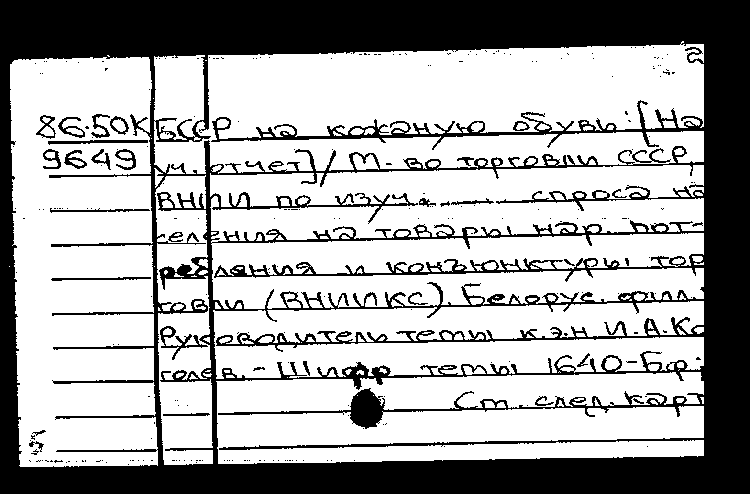 2
86.50К БССР на кожаную обувь: [На
9649 уч. отчет] / М-во торговли СССР,
ВНИИ по изуч. спроса на
селения на товары нар. пот-
ребления и конъюнктуры тор
говли (ВНИИКС). Белорус. фил.
Руководитель темы к.э.н И.А.Ко
голев. - Шифр темы 1640-Бф;
Ст. след. карт
5